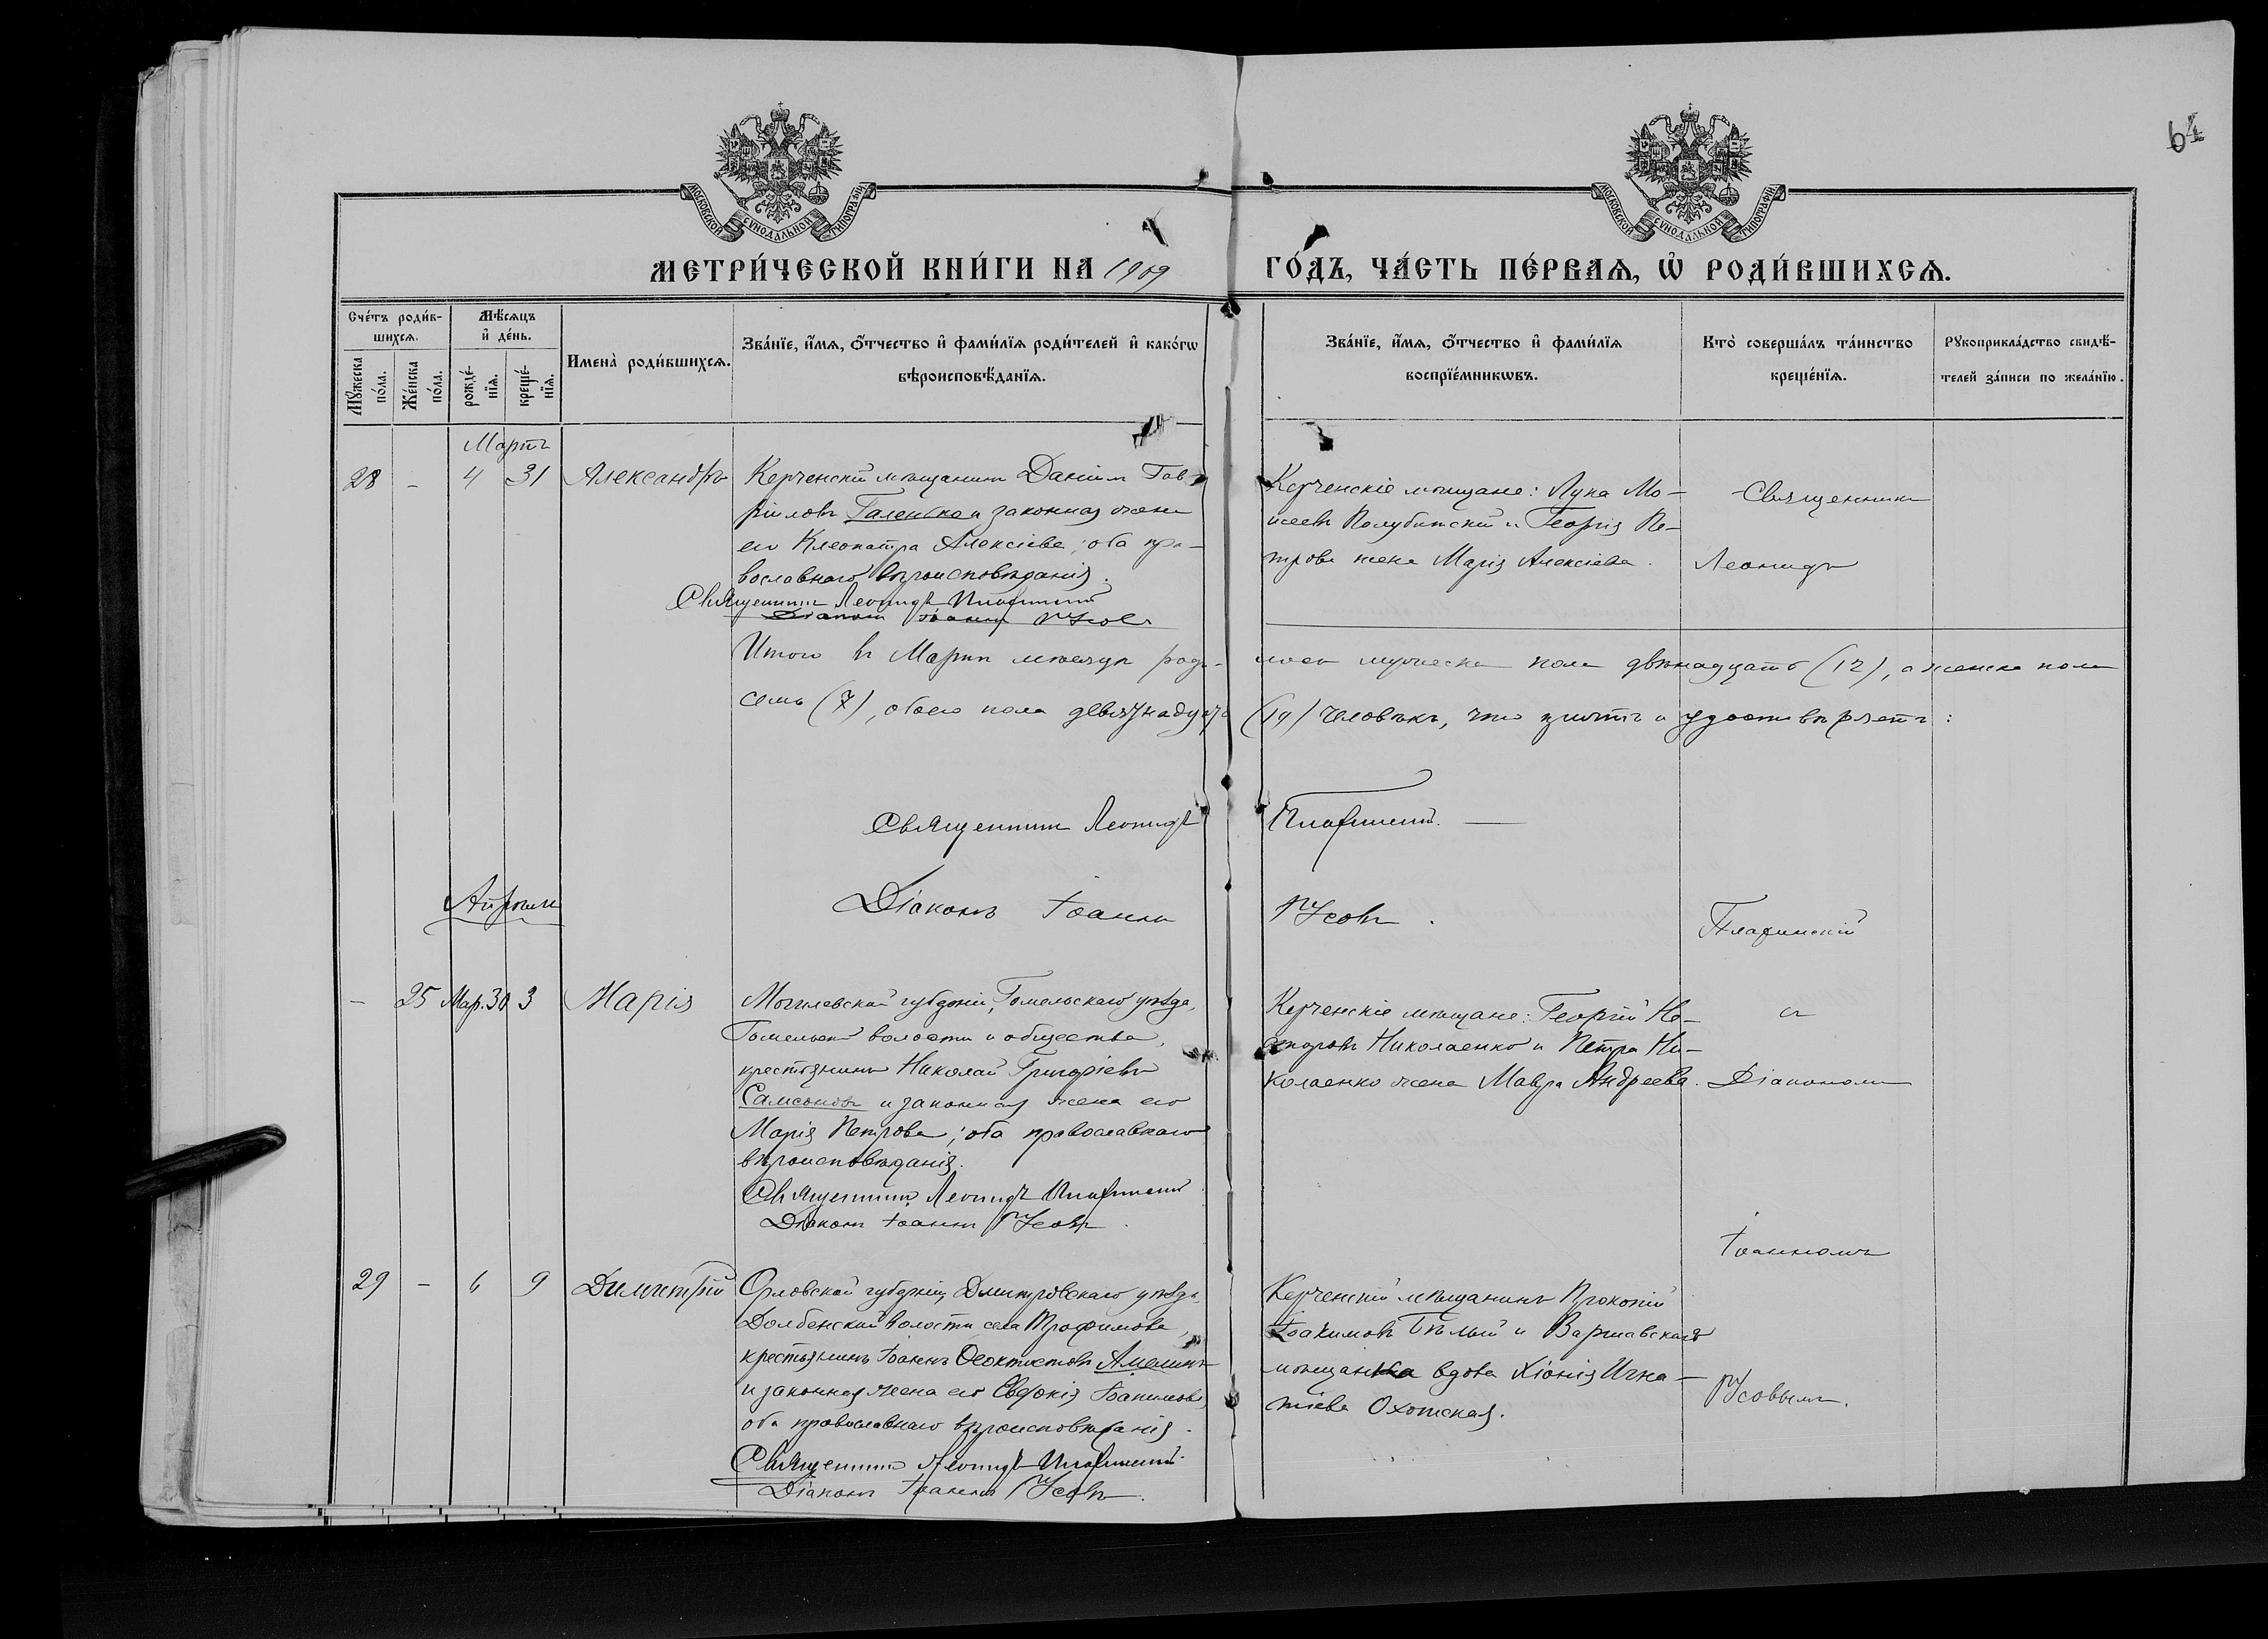 64
МОСКОВСКОЙ СУНОДАЛЬНОЙ ТИПОГРАФІИ
МОСКОВСКОЙ СУНОДАЛЬНОЙ ТИПОГРАФІИ
МЕТРИ́ЧЕСКОЙ КНИ́ГИ НА 1909 ГО́ДЪ, ЧА́СТЬ ПЕ́РВАѦ, Ѡ҆ РОДИ́ВШИХСѦ.
Сче́тъ роди́в-
шихсѧ.
Мꙋ́жеска по́ла.
Же́нска по́ла.
Мѣ́сѧцъ
и҆ де́нь.
рожде́-
нїѧ.
креще́-
нїѧ.
Имена̀ роди́вшихсѧ.
Зва́нїе, и҆́мѧ, ѻ҆́тчество и҆ фами́лїѧ роди́телей и҆ како́гѡ
вѣроисповѣ́данїѧ.
Зва́нїе, и҆́мѧ, ѻ҆́тчество и҆ фами́лїѧ
воспрїе́мникѡвъ.
Кто̀ соверша́лъ та́инство
креще́нїѧ.
Рꙋкоприкла́дство свидѣ́-
телей за́писи по жела́нїю.
Мартъ
28 - 4 31 Александръ
Керченскій мѣщанинъ Даніилъ Гав-
ріиловъ Галенька и законная жена
его Клеопатра Алексіева; оба пра-
вославнаго вѣроисповѣданія.
Священникъ Леонидъ Плафинскій
Діаконъ Іоаннъ Усовъ
Керченскіе мѣщане: Лука Мо-
исеевъ Полубинскій и Георгія Пе-
трова жена Марія Алексіева.
Священникъ
Леонидъ
Итого въ Мартѣ мѣсяцѣ роди-лось мужеска пола двѣнадцать (12), а женска пола
семь (7), обоего пола девятнадцать (19) человѣкъ, что симъ и удостовѣряетъ:
Священникъ Леонидъ Плафинскій.
Діаконъ Іоаннъ Усовъ.
Плафинскій
Апрѣль
- 25 Мар. 30 3 Марія
Могилевской губерніи, Гомельскаго уѣзда,
Гомельской волости и общества,
крестьянинъ Николай Григоріевъ
Самсоновъ и законная жена его
Марія Петрова; оба православнаго
вѣроисповѣданія.
Священникъ Леонидъ Плафинскій.
Діаконъ Іоаннъ Усовъ.
Керченскіе мѣщане: Георгій Не-
сторовъ Николаенко и Петра Ни-
колаенко жена Мавра Андреева.
съ
Діакономъ
Іоанномъ
Усовымъ.
29 - 6 9 Димитрій
Орловской губерніи, Дмитровскаго уѣзда,
Долбенской волости села Трофимова,
крестьянинъ Іоаннъ Ѳеоктистовъ Амелинъ
и законная жена его Евдокія Іоакимова,
оба православнаго вѣроисповѣданія.
Священникъ Леонидъ Плафинскій.
Діаконъ Іоаннъ Усовъ.
Керченскій мѣщанинъ Прокопій
Іоакимовъ Бѣлый и Варшавская
мѣщанка вдова Хіонія Игна-
тіева Охотская.